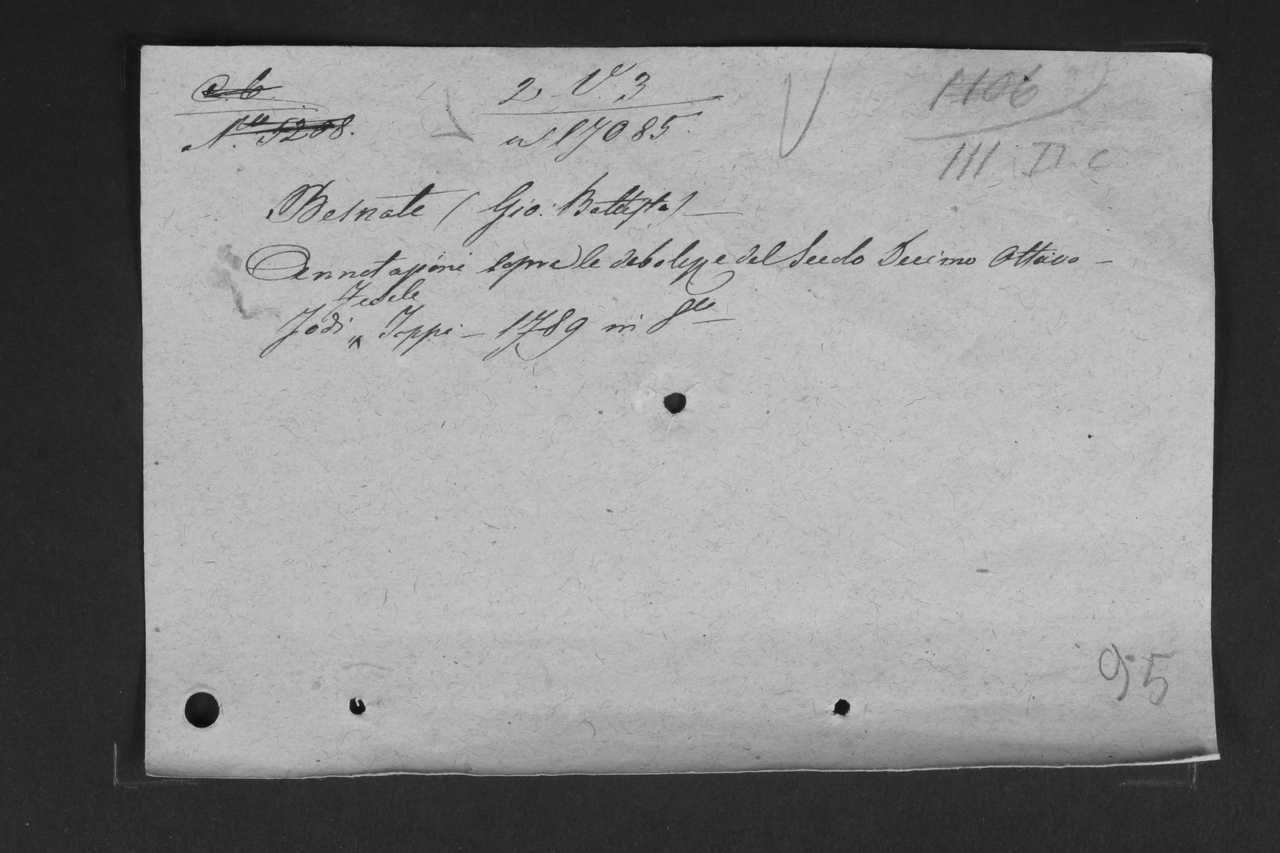 a. b. 2. V. 3 1106
N.º 5208. n 17085. III II C
Besnate (Gio: Battista) —
Annotazioni sopra le debolezze del Secolo Decimo Ottavo —
Fedele
Todi „ Toppi — 1789 in 8.vo
95